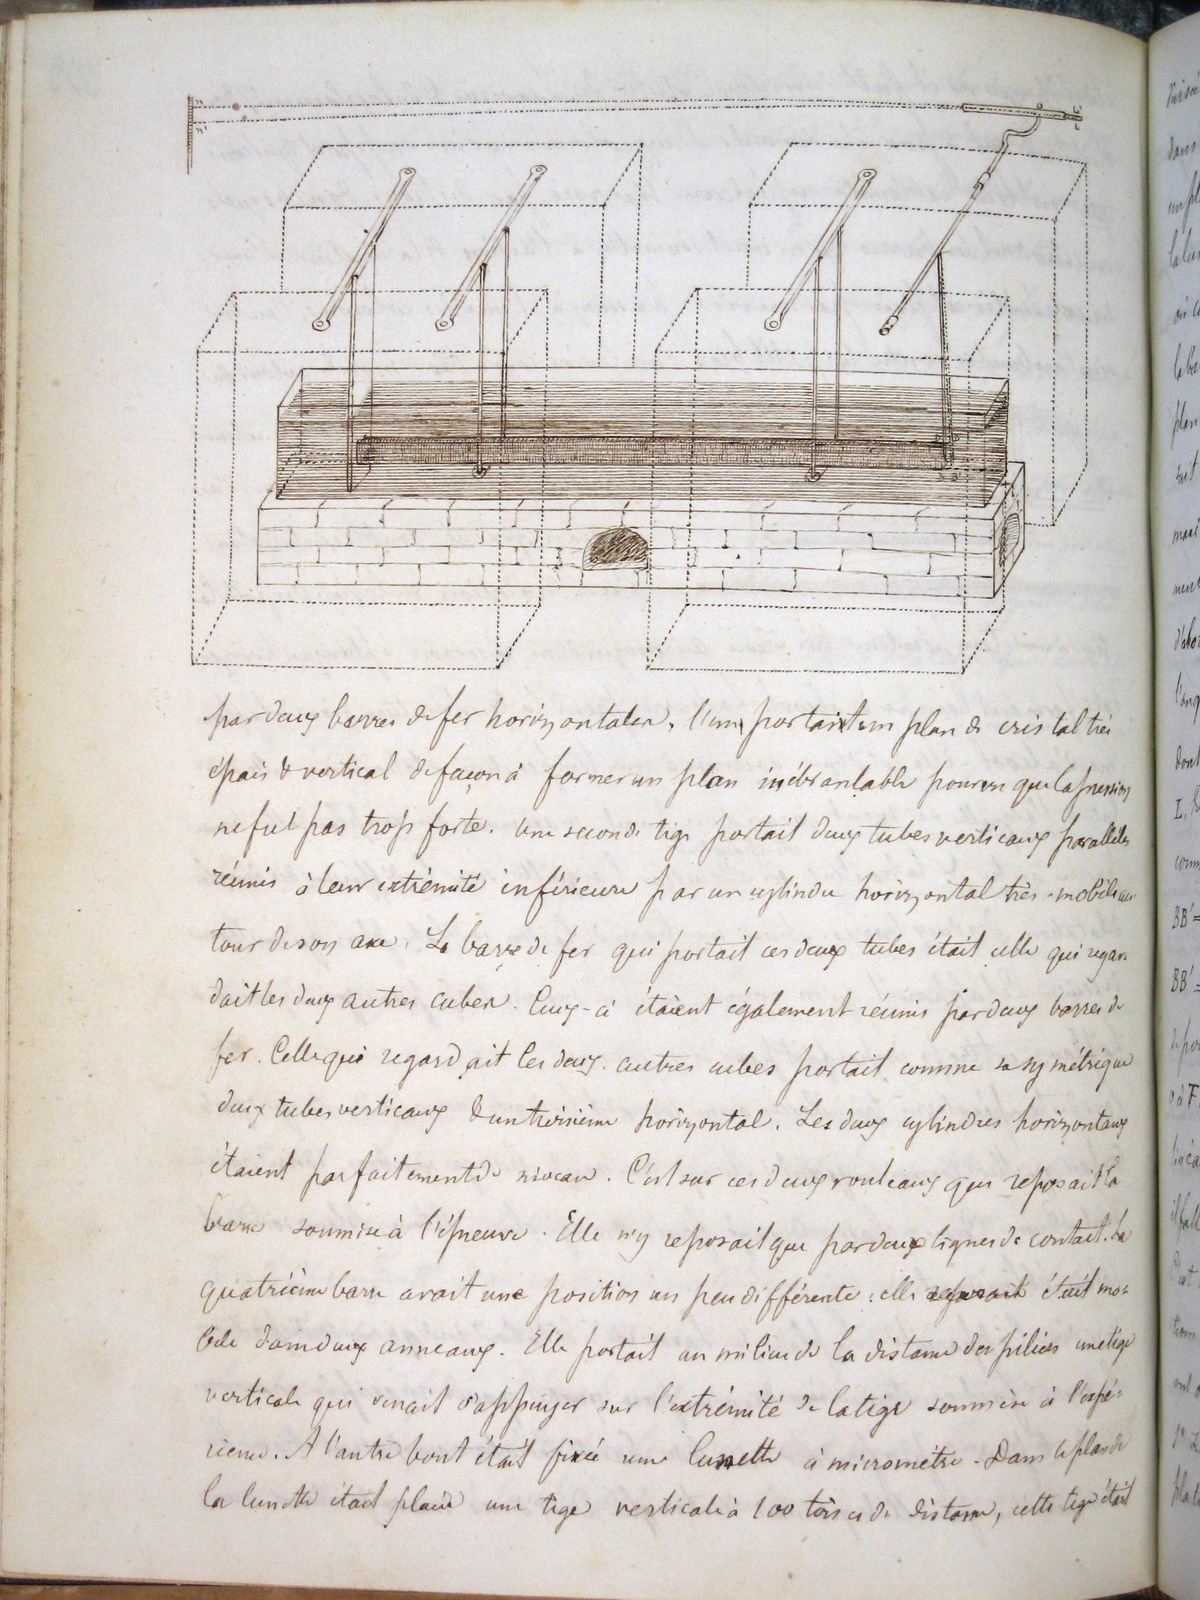 par deux barres de fer horizontales. l'une portait un plan de cristal très
épais & vertical de façon à former un plan inébranlable pourvu que la pression
ne fut pas trop forte. Une seconde tige portait deux tubes verticaux parallèles
réunis à leur extrémité inférieure par un cylindre horizontal très-mobile au
tour de son axe. La barre de fer qui portait ces deux tubes était celle qui regar
dait les deux autres cubes. Ceux-ci étaient également réunis par deux barres de
fer. Celle qui regardait les deux autres cubes portait comme sa symétrique
deux tubes verticaux & un troisième horizontal. Les deux cylindres horizontaux
étaient parfaitement de niveau. C'est sur ces deux rouleaux que reposait la
barre soumise à l'épreuve. Elle n'y reposait que par deux lignes de contact. La
quatrième barre avait une position un peu différente : elle était mo=
bile dans deux anneaux. Elle portait au milieu de la distance des piliers une tige
verticale qui venait s'appuyer sur l'extrémité de la tige soumise à l'expé=
rience. A l'autre bout était fixée une lunette à micromètre. Dans le plan de
la lunette était placée une tige verticale à 100 toises de distance, cette tige était
dans
BB'=
BB'=